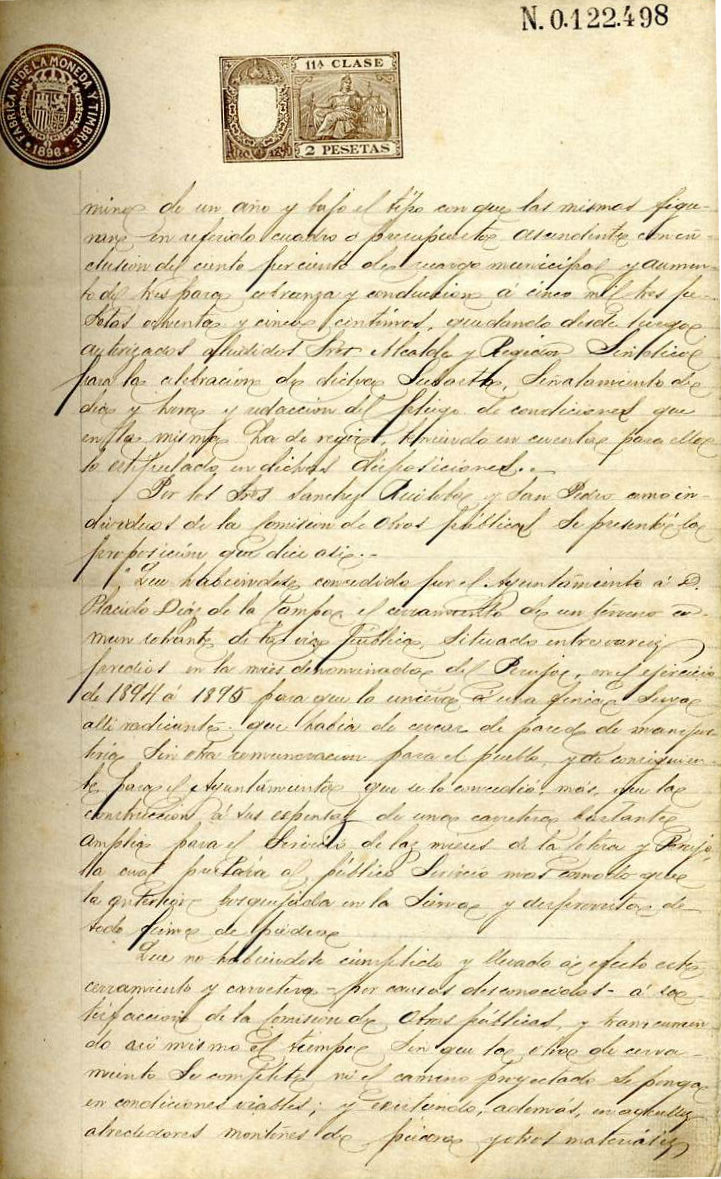 N. 0.122.498
FABRICA Nl. DE LA MONEDA Y TIMBRE
1896
11ª CLASE
2 PESETAS
mino de un año y bajo el tipo con que las mismas figu-
ran en referido cuadro o presupuesto ascendente con in-
clusion del ciento por ciento de recargo municipal y aumen-
to del tres para cobranza y conduccion á cinco mil tres pe-
setas ochenta y cinco centimos, quedando desde luego
autorizados aludidos Sres Alcalde y Regidor Sindico
para la celebracion de dicha Subasta, Señalamiento de
dia y hora y redaccion del pliego de condiciones que
en la misma ha de regir, teniendo en cuenta para ello
lo estipulado en dichas disposiciones.
Por los Sres Sanchez y San Pedro como in-
dividuos de la Comision de Obras públicas se presentó la
proposición que dice asi.-
"Que habiendose concedido por el Ayuntamiento á D.
Placido Diaz de la Campa el cerramiento de un terreno co-
mun sobrante de la via Publica, situado entre varios
predios en la mies denominada del, en el ejercicio
de 1894 á 1895 para que lo uniera á una finca Suya
alli radicante que habia de cercar de pared de mampos-
teria Sin otra remuneracion para el pueblo, y de consiguien-
te para el Ayuntamiento que se lo concedió, más, que la
construccion á sus espensas de una carretera bastante
amplia para el Servicio de las mieses de la y
la cual prestara al público Servicio mas comodo que
la anterior bosquejada en la y desprovista de
todo firme de piedra
Que no habiendose cumplido y llevado á efecto este
cerramiento y carretera - por causas desconocidas - á sa-
tisfaccion de la Comision de Obras públicas, y transcurrien-
do asi mismo el tiempo Sin que la obra de cerra-
miento Se complete ni el camino proyectado Se ponga
en condiciones viables; y existiendo, además, en aquellos
alrededores montones de piedra y otros materiales